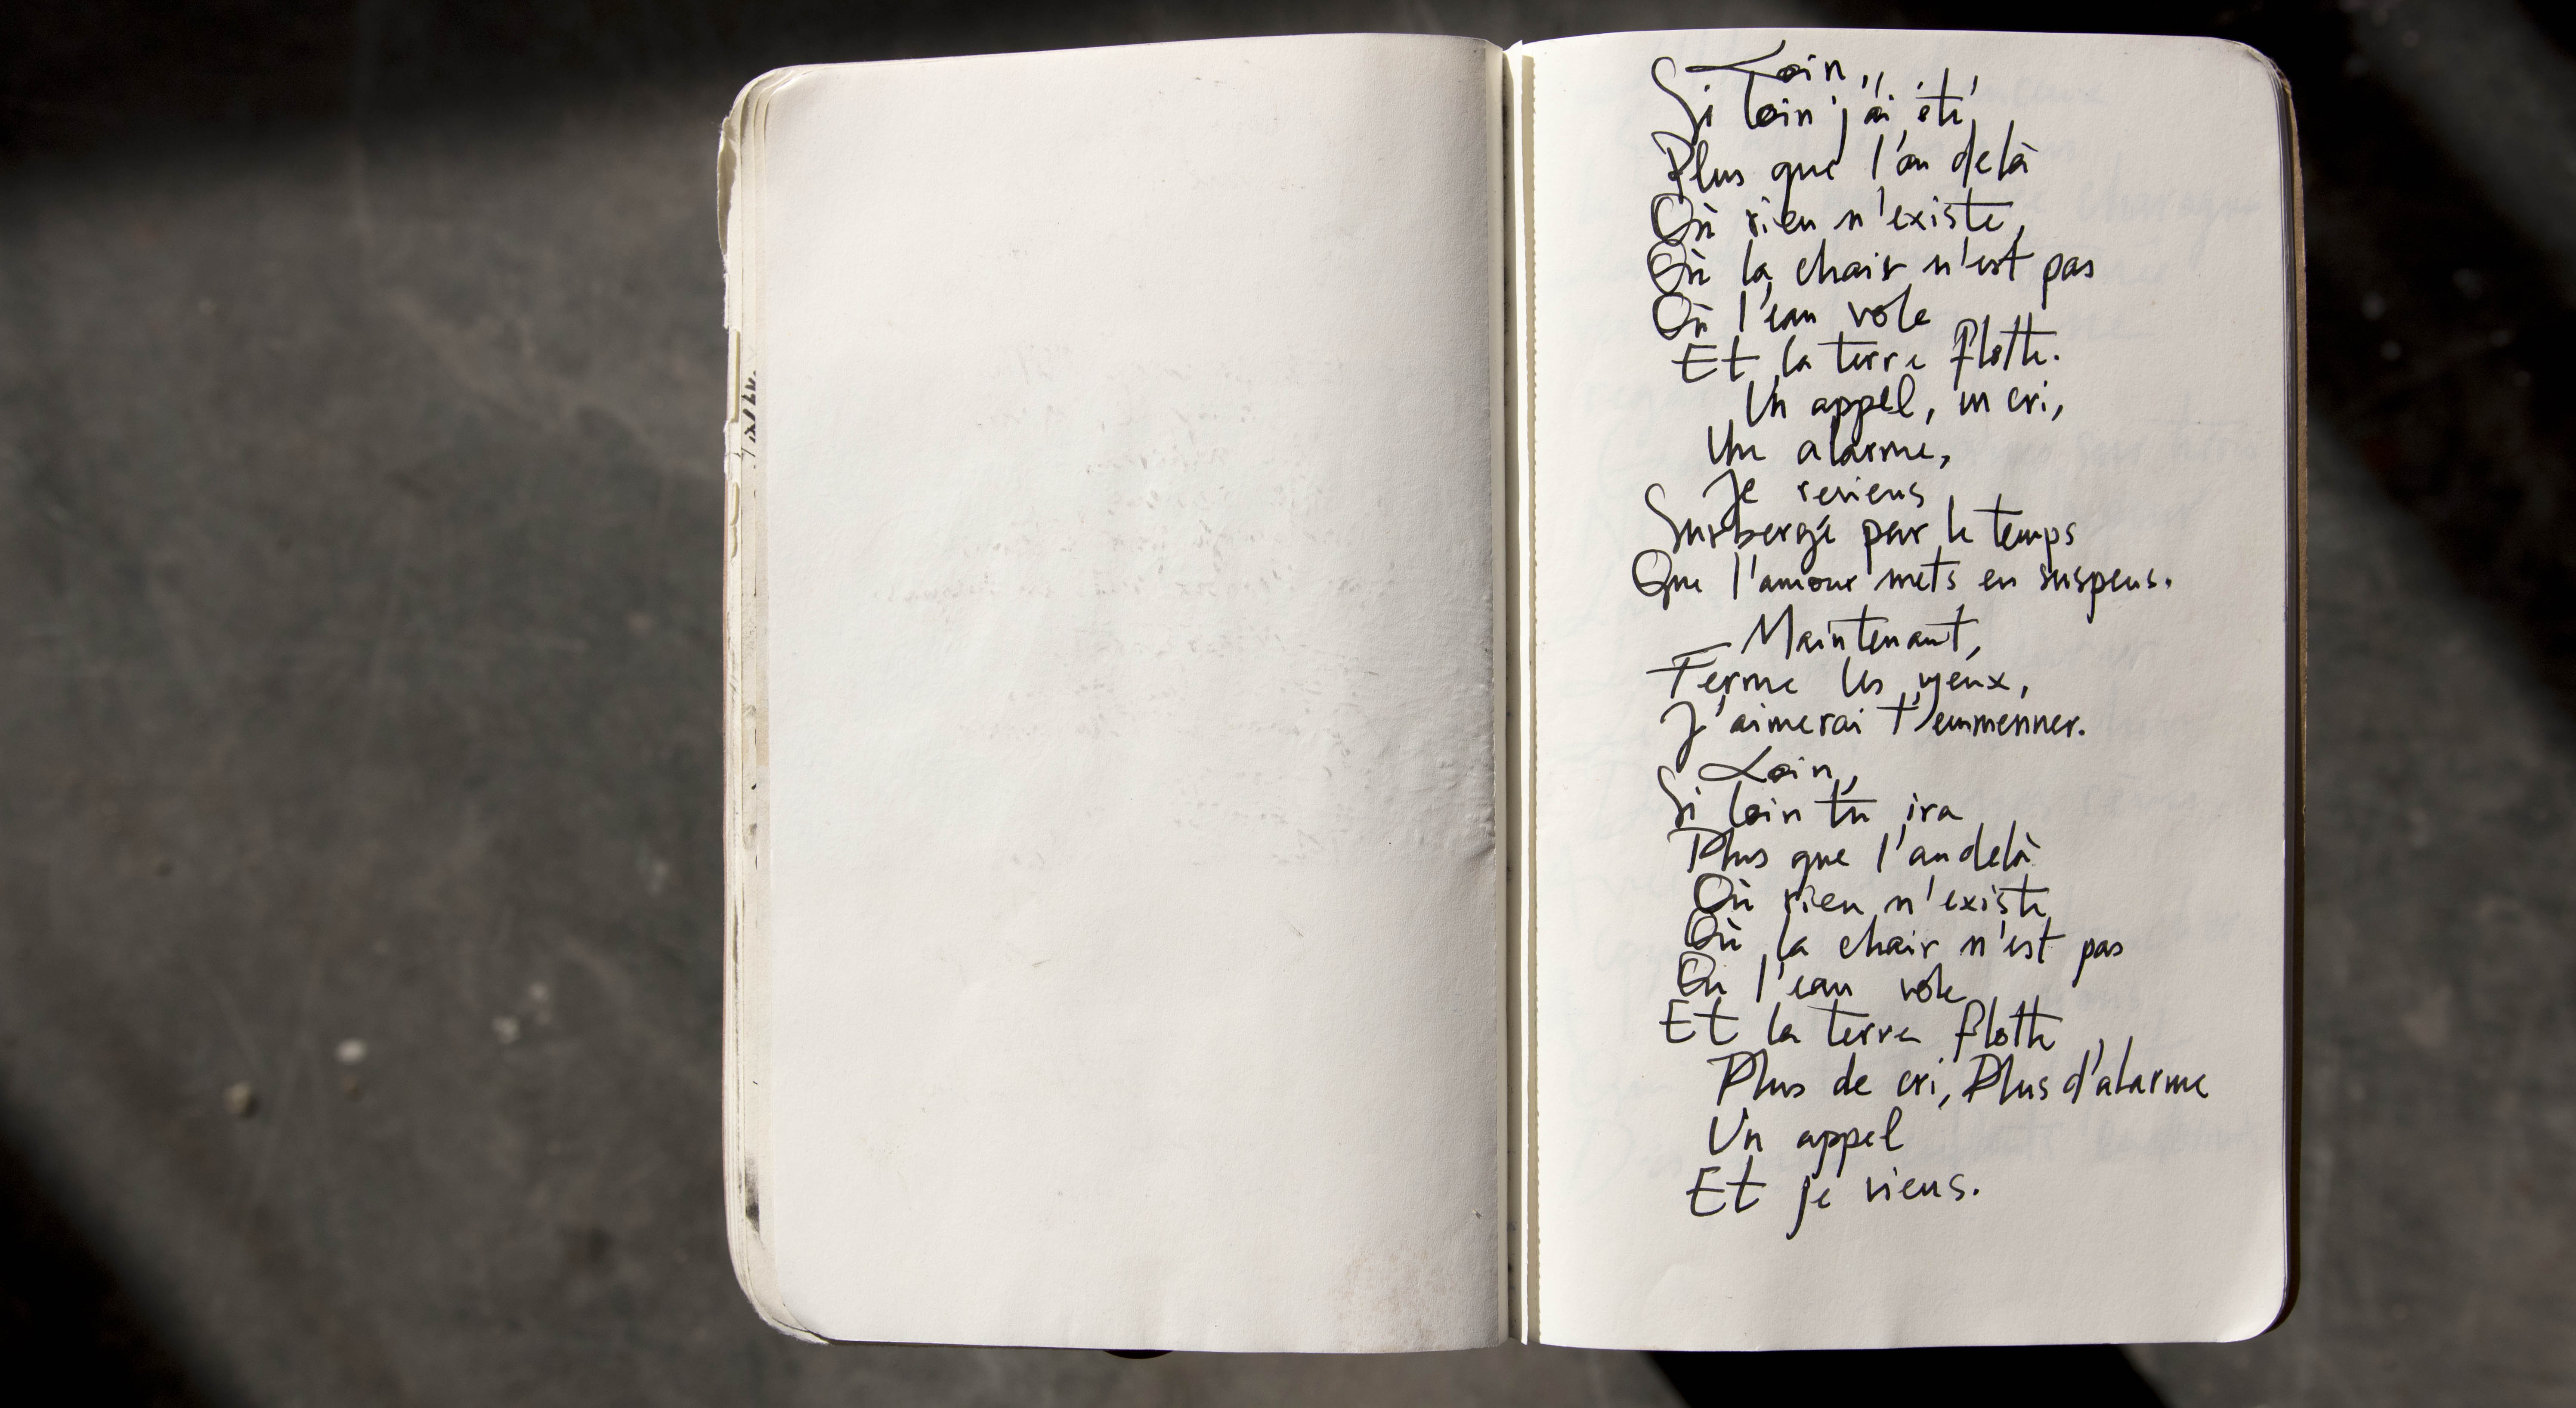 Loin,
Si loin j'ai été,
Plus que l'au delà
Où rien n'existe,
Où la chair n'est pas
Où l'eau vole
Et la terre flotte.
Un appel, un cri,
Une alarme,
Je reviens
Surbergé par le temps
Que l'amour mets en suspens.
Maintenant,
Ferme les yeux,
J'aimerai t'emmenner.
Loin,
Si loin tu ira
Plus que l'au delà
Où rien n'existe
Où la chair n'est pas
Où l'eau vole
Et la terre flotte,
Plus de cri, Plus d'alarme
Un appel
Et je viens.